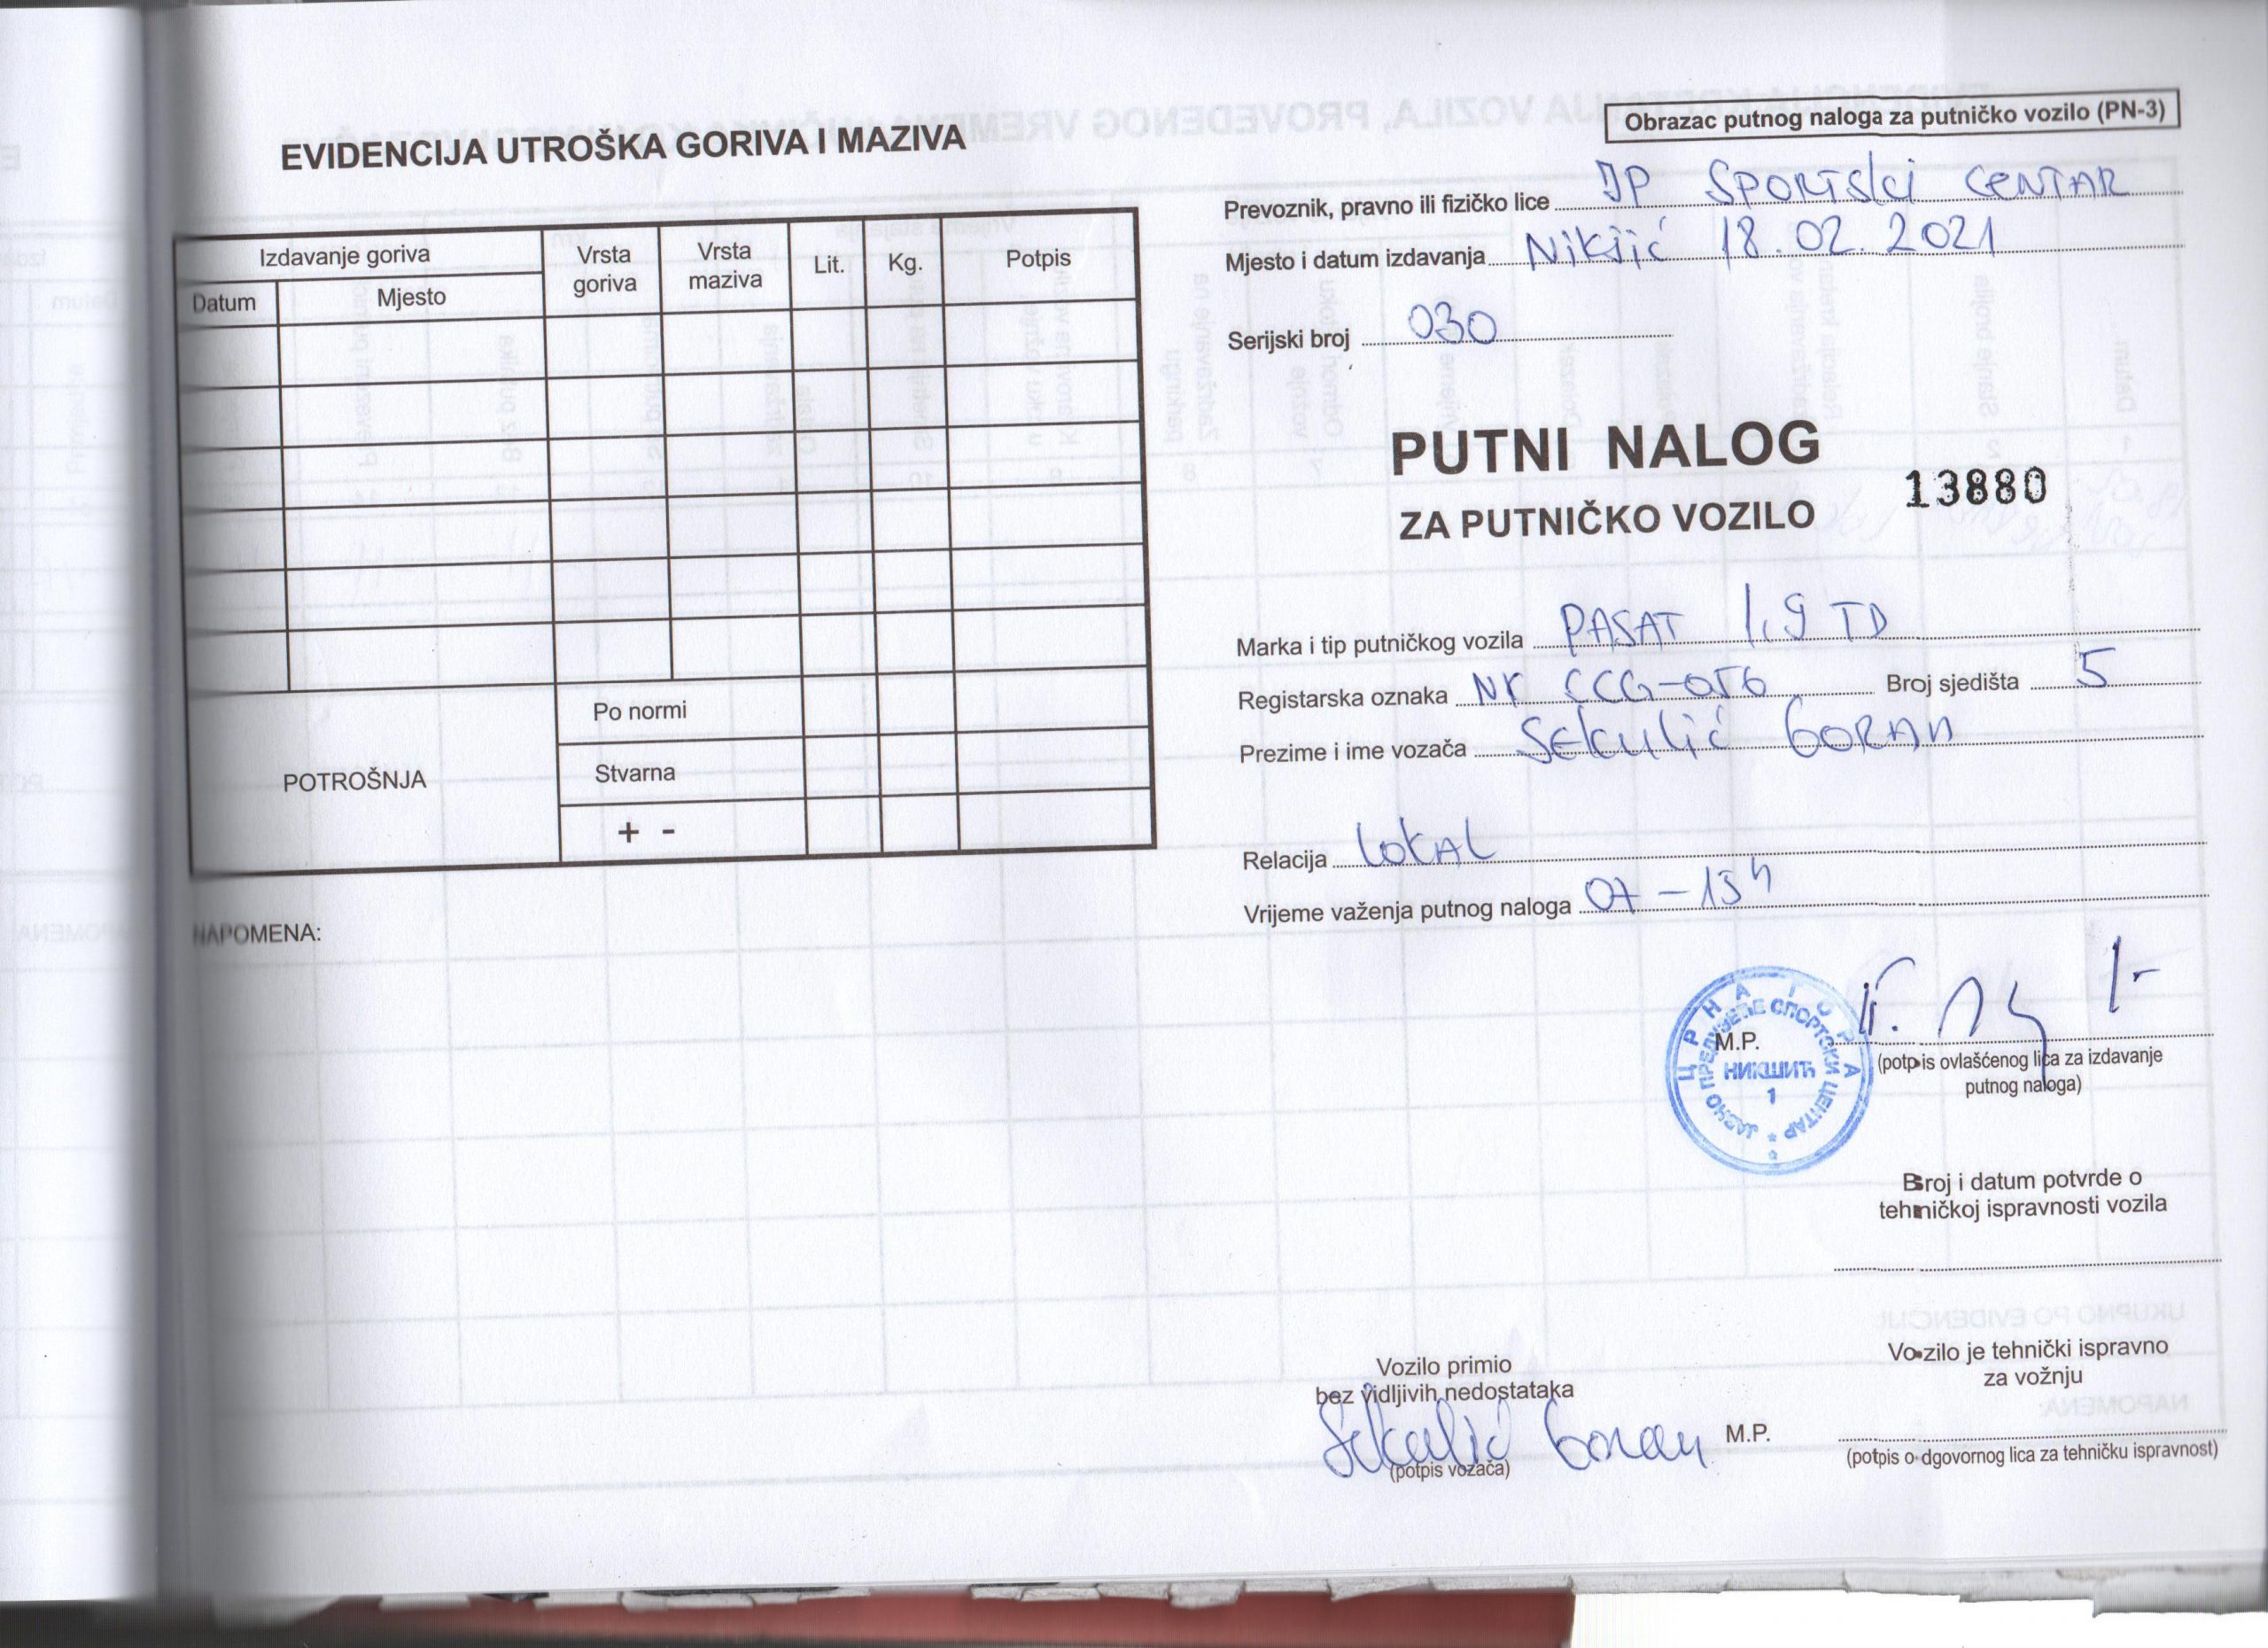 EVIDENCIJA UTROŠKA GORIVA I MAZIVA
Izdavanje goriva
Datum
Mjesto
Vrsta goriva
Vrsta maziva
Lit.
Kg.
Potpis
POTROŠNJA
Po normi
Stvarna
+ -
NAPOMENA:
Obrazac putnog naloga za putničko vozilo (PN-3)
Prevoznik, pravno ili fizičko lice JP SPORTSKI CENTAR
Mjesto i datum izdavanja Nikšić 18.02.2021
Serijski broj 030
PUTNI NALOG
ZA PUTNIČKO VOZILO
13880
Marka i tip putničkog vozila PASAT 1,9 TD
Registarska oznaka NK CCG-056 Broj sjedišta 5
Prezime i ime vozača SEKULIĆ GORAN
Relacija LOKAL
Vrijeme važenja putnog naloga 07-15h
ЦРНА ГОРА
ЈАВНО ПРЕДУЗЕЋЕ СПОРТСКИ ЦЕНТАР
НИКШИЋ
1
M.P.
(potpis ovlašćenog lica za izdavanje
putnog naloga)
Broj i datum potvrde o
tehničkoj ispravnosti vozila
Vozilo primio
bez vidljivih nedostataka
Sekulić Goran
(potpis vozača)
M.P.
Vozilo je tehnički ispravno
za vožnju
(potpis odgovornog lica za tehničku ispravnost)